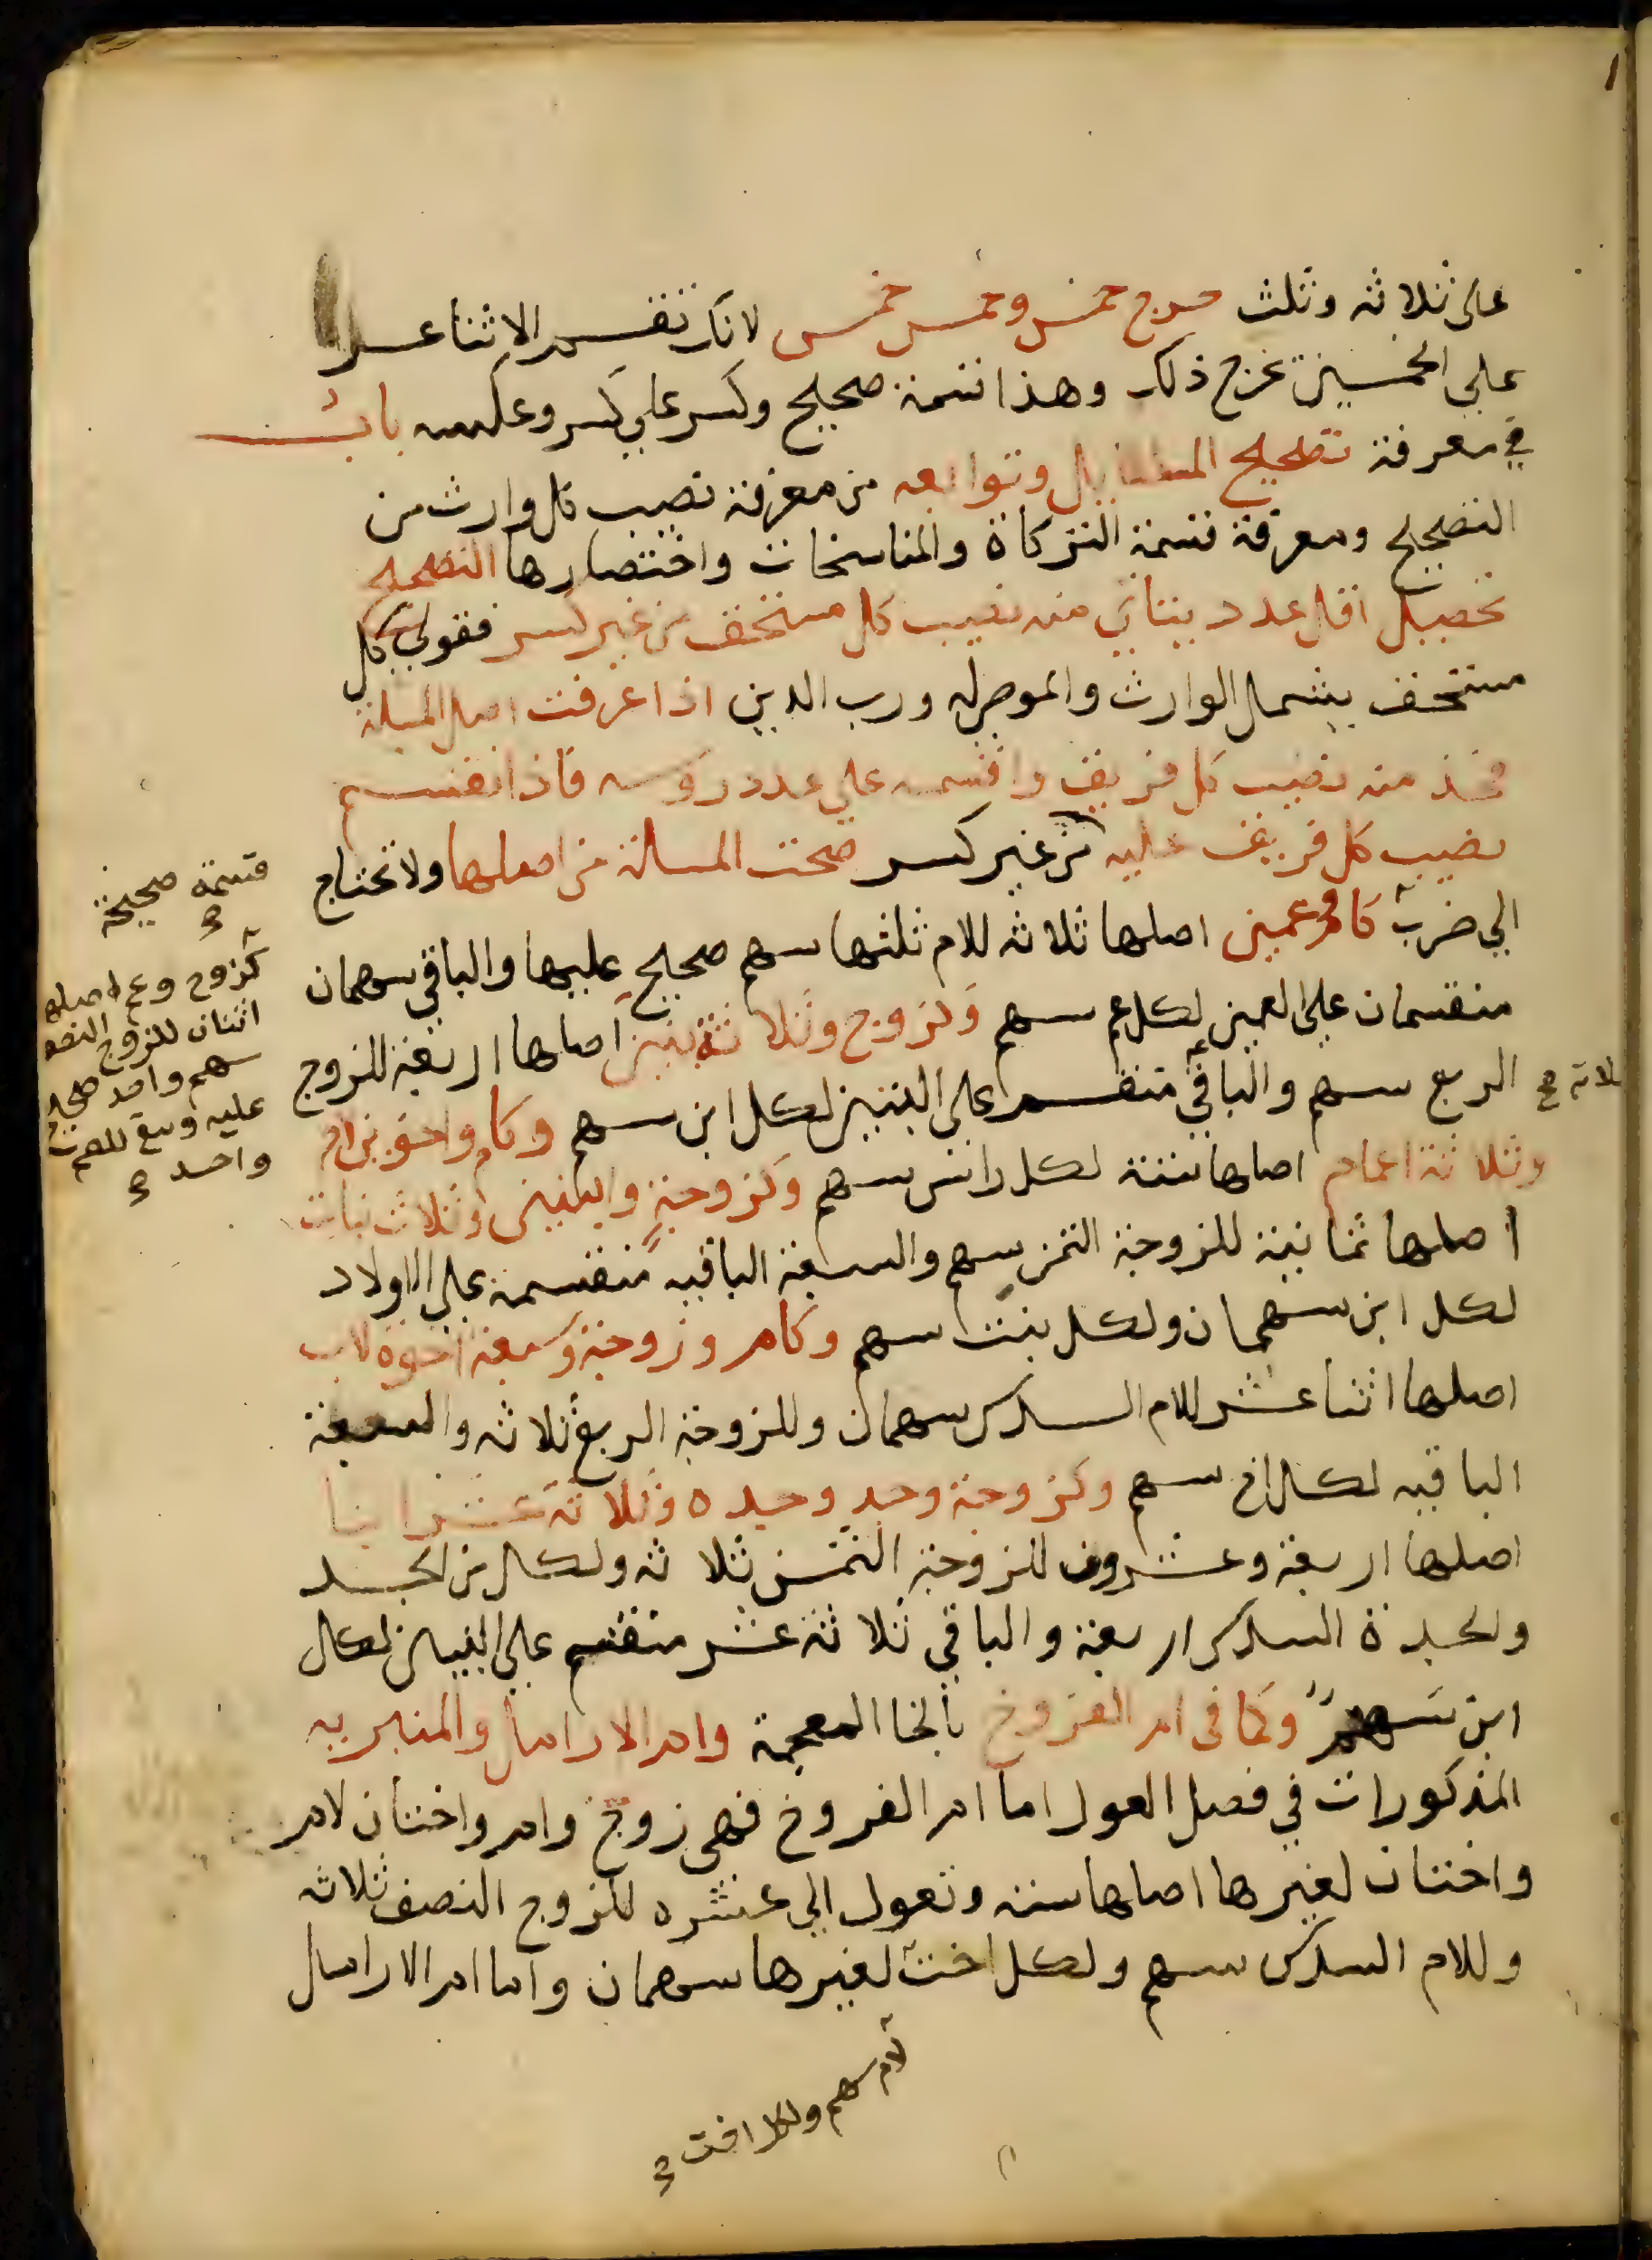 على ثلاثه وثلث خرج خمس وخمس خمس لانك تقسم الاثنا عشر
على الخمسين يخرج ذلك وهذا قسمة صحيح وكسر على كسر وعكسه باب
في معرفة تصحيح المسايل وتوابعه من معرفة نصيب كل وارث من
التصحيح ومعرفة قسمة التركاة والمناسخات واختصارها التصحيح
تحصيل اقل عدد يتاتي منه نصيب كل مستحق من غير كسر فقولي كل
مستحق يشمل الوارث والموصى له ورب الدين اذا عرفت اصل المسلة
فخذ منه نصيب كل فريق واقسمه على عدد رؤسه فاذا انقسم
نصيب كل فريق عليه من غير كسر صحت المسالة من اصلها ولا تحتاج
الي ضرب كام وعمين اصلها ثلاثه للام ثلثها سهم صحيح عليها والباقي سهمان
منقسمان على العمين لكل عم سهم وكزوج وثلاثة بنين اصلها اربعة للزوج
الربع سهم والباقي منقسم على البنين لكل ابن سهم وكام واخوين لام
وثلاثة اعمام اصلها ستة لكل راس سهم وكزوجة وابنين وثلاث بنات
اصلها ثمانية للزوجة الثمن سهم والسبعة الباقيه منقسمة على الاولاد
لكل ابن سهمان ولكل بنت سهم وكام وزوجة وسبعة اخوة لاب
اصلها اثنا عشر للام السدس سهمان وللزوجة الربع ثلاثه والسبعة
الباقيه لكل اخ سهم وكزوجة وجد وجده وثلاثة عشر ابنا
اصلها اربعة وعشرون للزوجة الثمن ثلاثه ولكل من الجد
والجدة السدس اربعة والباقي ثلاثة عشر منقسم على البنين لكل
ابن سهم وكما في ام الفروخ بالخا المعجمة وام الارامل والمنبريه
المذكورات في فصل العول اما ام الفروخ فهي زوج وام واختان لام
واختان لغيرها اصلها ستة وتعول الي عشره للزوج النصف ثلاثه
وللام السدس سهم ولكل اخت لغيرها سهمان واما ام الارامل
قسمة صحيحة
كزوج وعم اصلها
اثنان للزوج النصف
سهم واحد صحيح
عليه وبقي للعم
واحد
لام سهم ولكل اخت